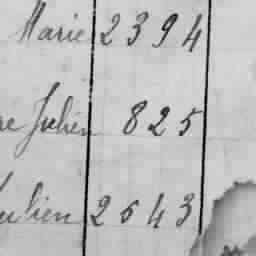 Marie 2394
re Julien 825
Julien 2543